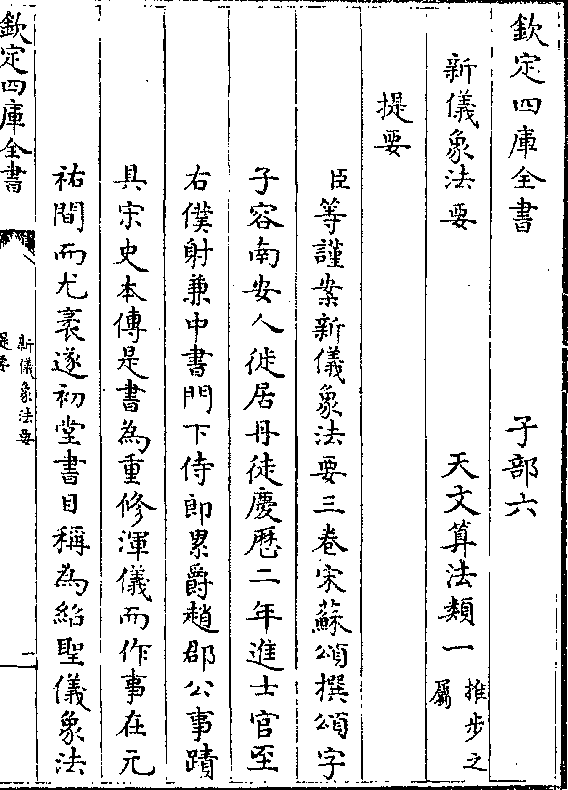 欽定四庫全書 子部六
新儀象法要 天文算法類一 推步之屬
提要
臣等謹案新儀象法要三卷宋蘇頌撰頌字
子容南安人徙居丹徒慶厯二年進士官至
右僕射兼中書門下侍郎累爵趙郡公事蹟
具宋史本傳是書為重修渾儀而作事在元
祐間而尤袤遂初堂書目稱為紹聖儀象法
欽定四庫全書
新儀象法要
提要